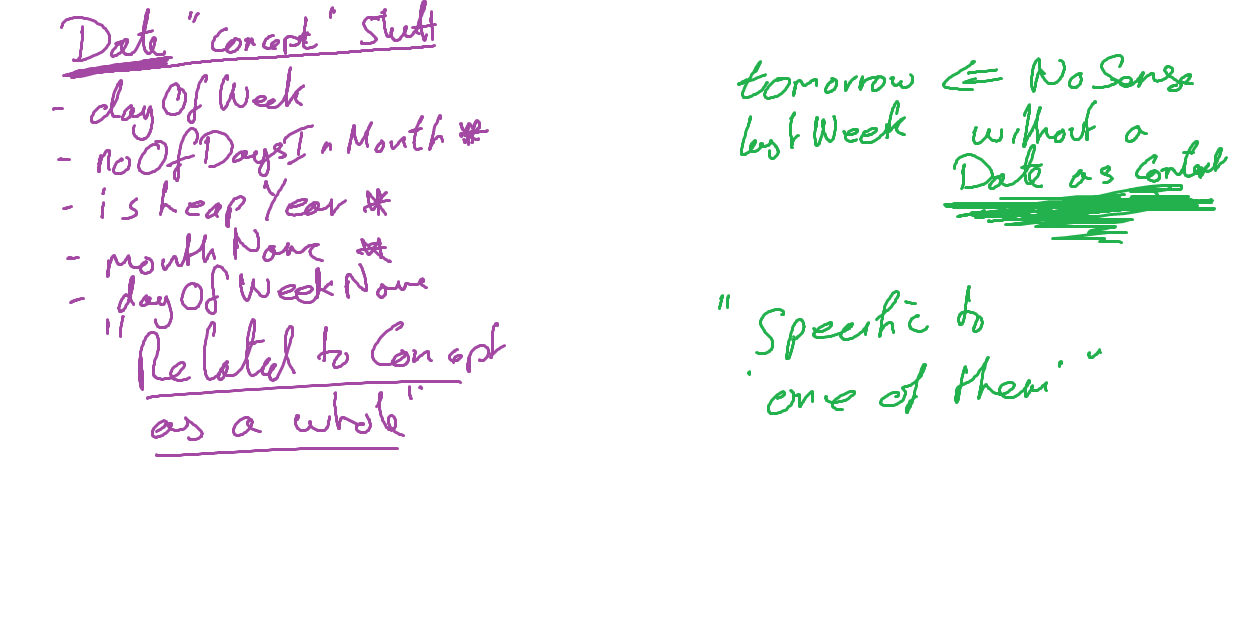 Date "Concept" Stuff
- dayOfWeek
- noOfDaysInMonth *
- isLeapYear *
- monthName *
- dayOfWeekName
"Related to Concept
as a whole"
tomorrow ⇐ No Sense
lastWeek without a
Date as Context
"Specific to
'one of them'"